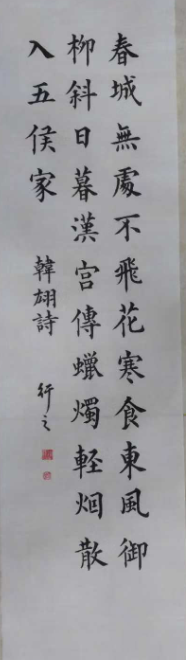 春城無處不飛花寒食東風御
柳斜日暮漢宮傳蠟燭軽烟散
入五侯家
韓翃詩
行之